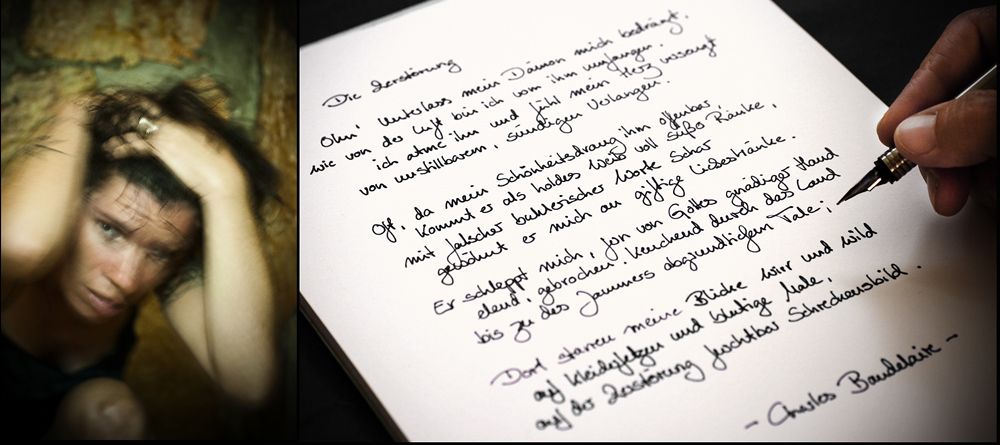 Die Zerstörung
Ohn' Unterlass mein Dämon mich bedrängt,
wie von der Luft bin ich von ihm umfangen.
ich atme ihn und fühl mein Herz versengt
von unstillbarem, sündigen Verlangen.
Oft, da mein Schönheitsdrang ihm offenbar
kommt er als holdes Weib voll süßer Ränke,
mit falscher buhlerischer Worte Schar
gewöhnt er mich an giftige Liebestränke.
Er schleppt mich, fern von Gottes gnädiger Hand
elend, gebrochen. Keuchend durch das Land
bis zu des Jammers abgrundtiefem Tale;
Dort starren meine Blicke wirr und wild
auf Kleiderfetzen und blutige Male,
auf der Zerstörung furchtbar Schreckensbild.
- Charles Baudelaire -